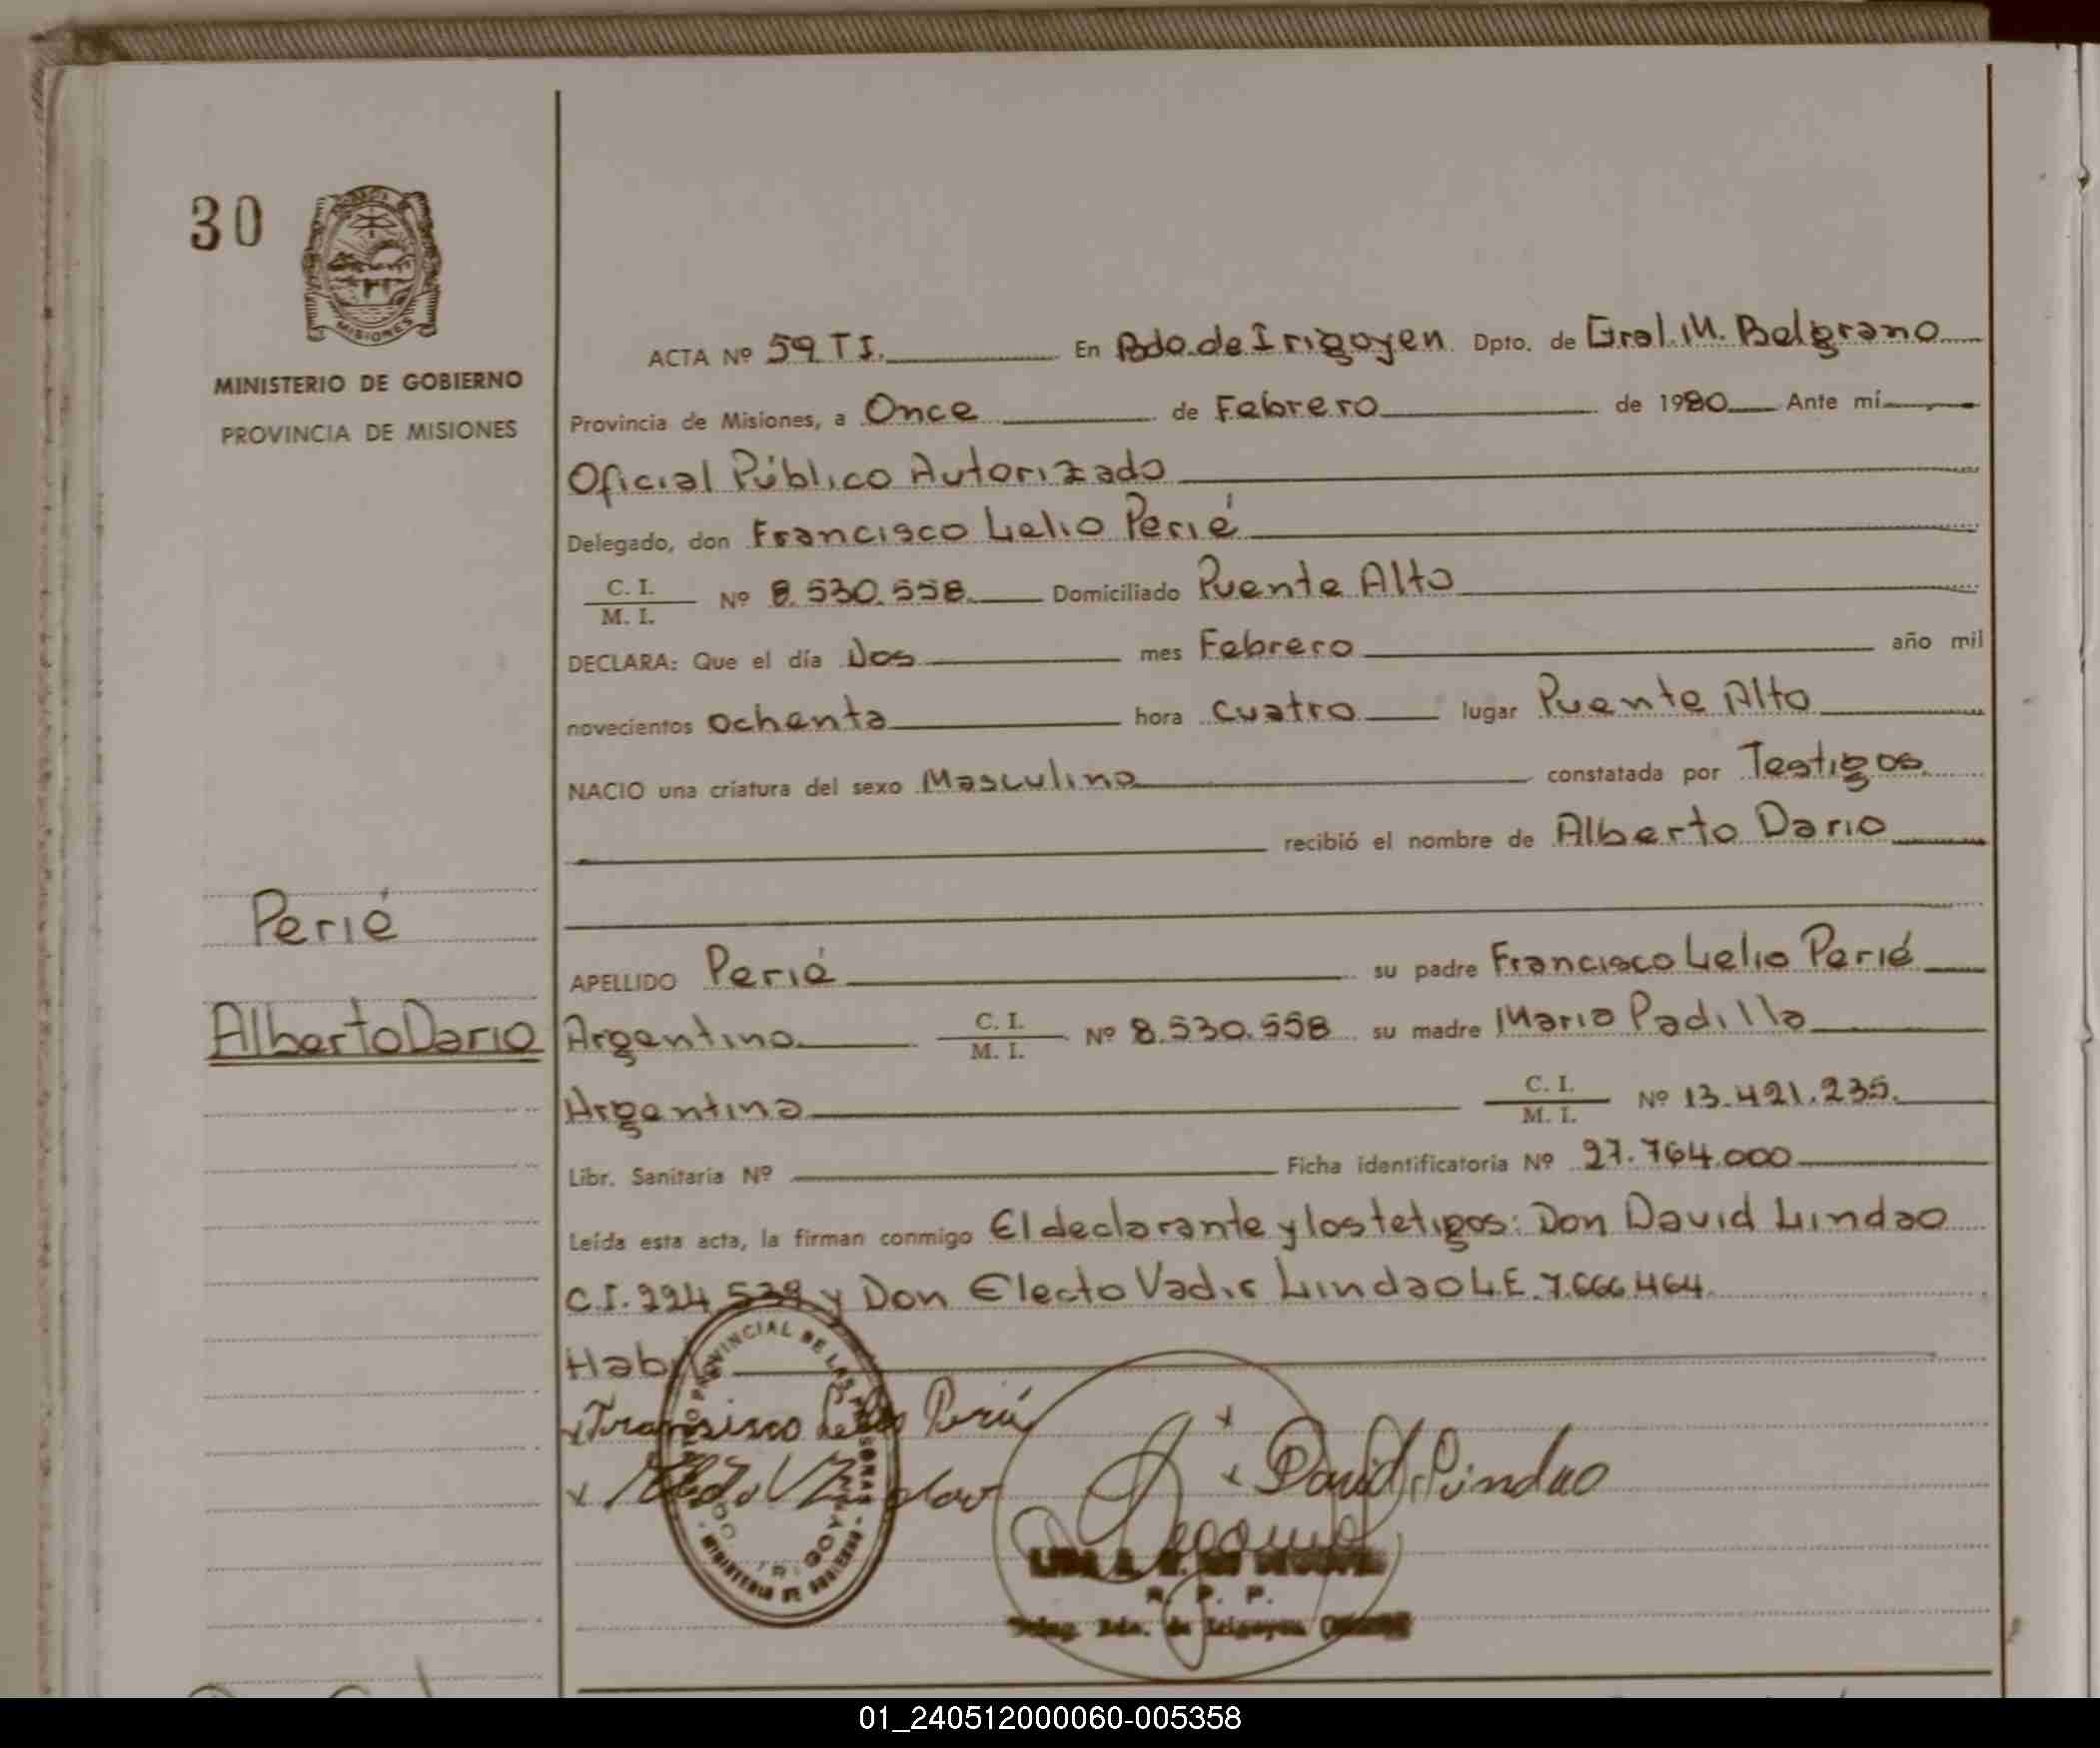 30
MISIONES
MINISTERIO DE GOBIERNO
PROVINCIA DE MISIONES
ACTA Nº 59 T I. En Bdo. de Irigoyen Dpto. de Gral. M. Belgrano
Provincia de Misiones, a Once de Febrero de 1980 Ante mí
Oficial Público Autorizado
Delegado, don Francisco Lelio Perié
C. I.
M. I.
Nº 8.530.558 Domiciliado Puente Alto
DECLARA: Que el día Dos mes Febrero año mil
novecientos ochenta hora cuatro lugar Puente Alto
NACIO una criatura del sexo Masculino constatada por Testigos
recibió el nombre de Alberto Dario
Perié
APELLIDO Perié su padre Francisco Lelio Perié
Alberto Dario
Argentino C. I.
M. I.
Nº 8.530.558 su madre Maria Padilla
Argentina C. I.
M. I.
Nº 13.421.235.
Libr. Sanitaria Nº Ficha identificatoria Nº 27.764.000
Leída esta acta, la firman conmigo El declarante y los tetigos: Don David Lindao
C.I. 224.539 y Don Electo Vadis Lindao L.E. 7.666.464
Hab
PROVINCIAL DE LAS PERSONAS
MINISTERIO DE GOBIERNO
Fransisco Lelio Perié
x David Lindao
R. P. P.
Bdo. de Irigoyen
01_240512000060-005358